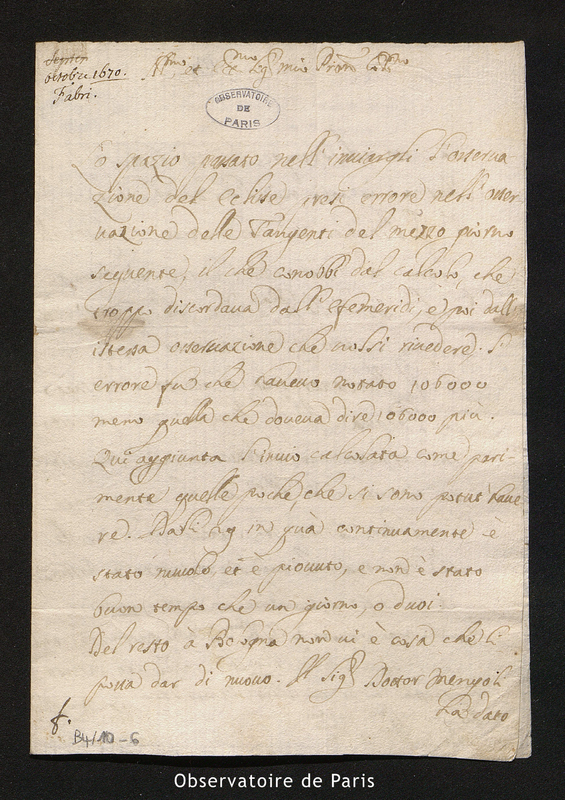 Septem
octobre 1670.
Fabri.
Ill.mo et Ecc.mo Sig.r mio Pron Col.mo
OBSERVATOIRE
DE
PARIS
Lo spazio pasato nell' inviargli l'osserva
zione del eclisse presi errore nell' osser
uazione delle Tangenti del mezzo giorno
seguente, il che conobbi dal calcolo, che
troppo discordaua dall' efemeridi, e poi dall
istessa osseruazione che uolsi riuedere. L'
errore fu che haueuo notato 106000
meno quella che doueua dire 106000 più.
Qui aggiunta l'inuio calcolata come pari-
mente quelle poche, che si sono potut' haue
re. in quà continuamente è
stato nuuolo, et è piouuto, e non è stato
buon tempo che un giorno, o duoi.
Del resto à Bologna non ui è cosa che li
possa dar di nuouo. Il Sig.r Dottor Mengoli
ha dato
f.
B4/10-6
Observatoire de Paris